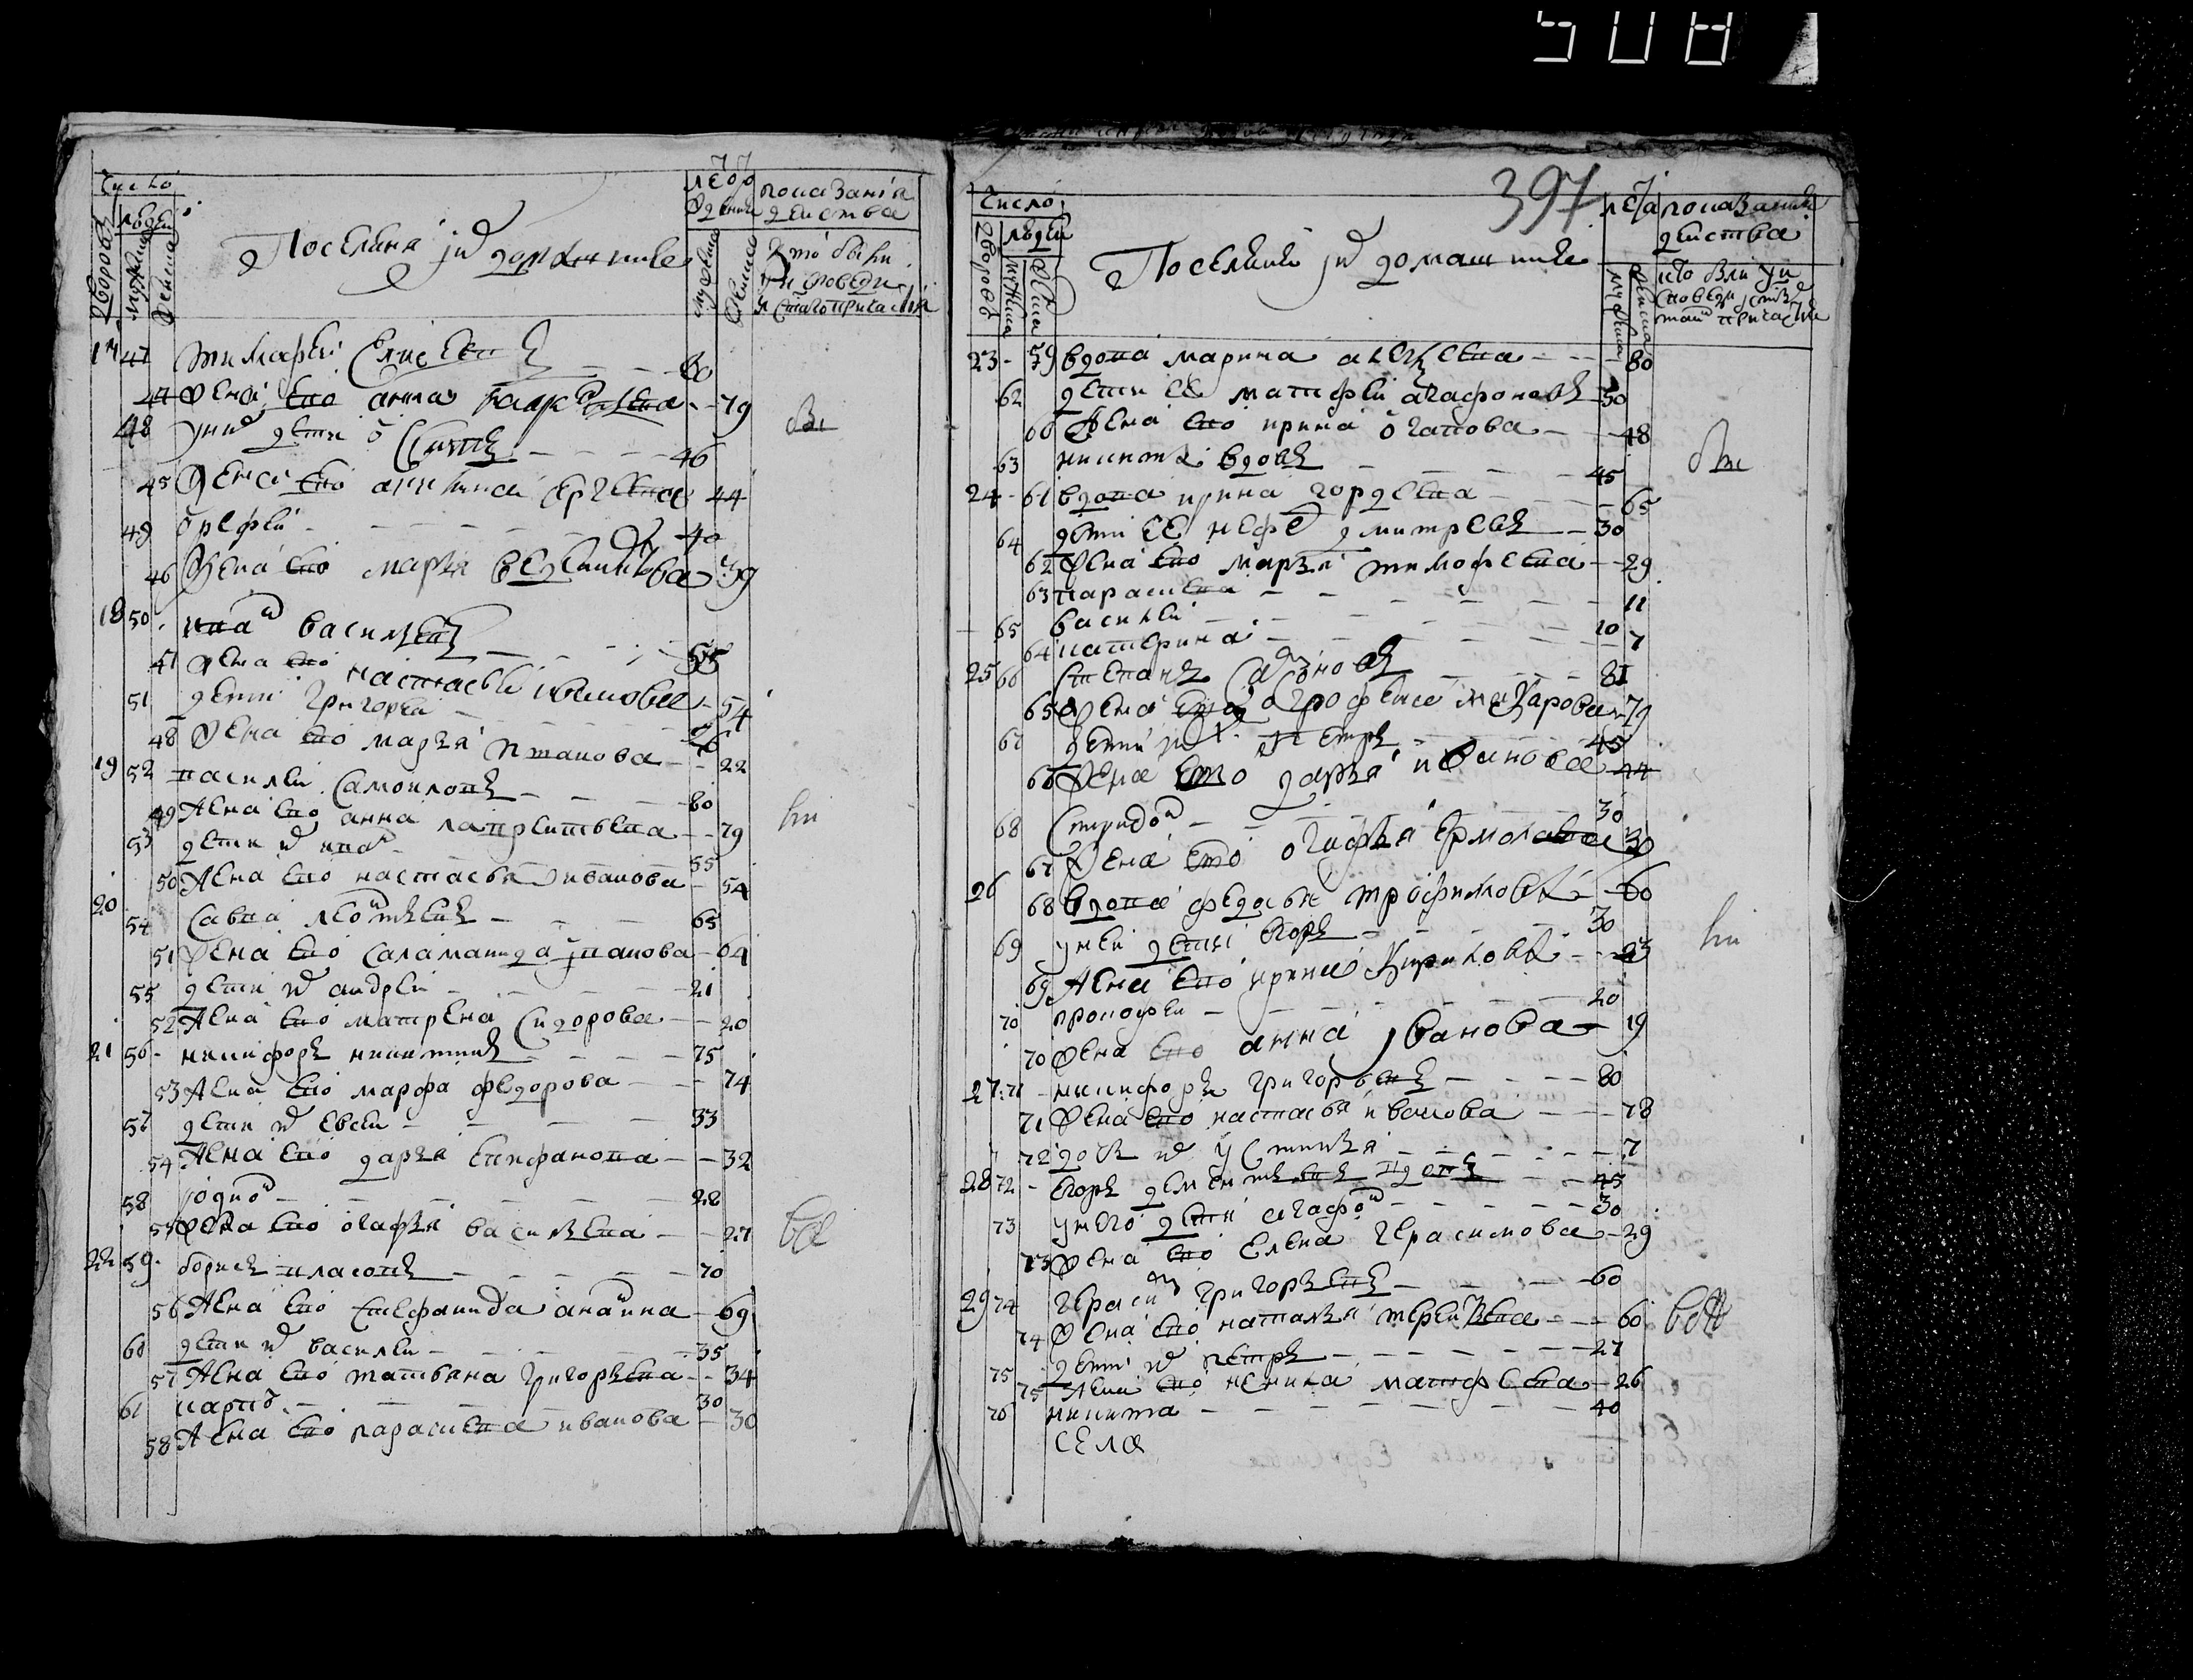 508
Число
дворовъ
людей
мужеска
женска
Поселяня и их домашние
лета
от рождения
мужеска
женска
показания действа
кто были у исповеди и святого причастия
17 47 тимофей елисеевъ 80
47 жена ево анна 79
48 у них дети осипъ 46
45 жена ево акилина сергеева 44
49 орефей 40
46 жена ево марья 39
18 50 иван васильевъ 55
47 жена ево настасья иванова 54
51 дети григорей 26
48 жена ево марья потапова 22
19 52 василей самойловъ 80
49 жена ево анна лаврентьева 79
53 дети их иван 55
50 жена ево настасья иванова 54
20 54 савва леонтьевъ 65
51 жена ево саламанида потапова 64
55 дети их андрей 21
52 жена ево матрена сидорова 20
21 56 никифоръ никитинъ 75
53 жена ево марфа федорова 74
57 дети их евсей 33
54 жена ево дарья епифанова 32
58 родион 28
55 жена ево огафья васильева 27
22 59 борисъ власовъ 70
56 жена ево стефанида ананина 69
60 дети их василей 35
57 жена ево татьяна григорьева 34
61 карпъ 30
58 жена ево парасковья иванова 30
397
Число
дворовъ
людей
мужеска
женска
Поселяня и их домашние
лета
мужеска
женска
показания действа
кто были у исповеди и святого причастия
23 59 вдова марина алексеева 80
62 дети ее матфей агафоновъ 50
60 жена ево ирина 48
63 никита вдовъ 45
24 61 вдова ирина гордеева 65
64 дети ее нефед дмитревъ 30
62 жена ево марья тимофеева 29
63 парасковья 11
65 василей 10
64 катерина 7
25 66 степанъ сазоновъ 81
65 жена ево огрофена макарова 79
67 дети их петръ 45
66 жена ево дарья иванова 44
68 спиридон 30
67 жена ево огафья ермолаева 30
26 68 вдова федосья трофимова 60
69 у ней дети егоръ 30
69 жена ево ирина кирилова 23
70 прокофей 20
70 жена ево анна иванова 19
27 71 никифоръ григорьевъ 80
71 жена ево настасья иванова 78
72 дочь их устинья 7
28 72 егоръ дементьевъ вдовъ 45
73 у него дети агафон 30
73 жена ево елена герасимова 29
29 74 герасим григорьевъ 60
74 жена ево наталья терентьева 60
75 дети их петръ 27
75 жена ево ненила матфеева 26
76 никита 40
села